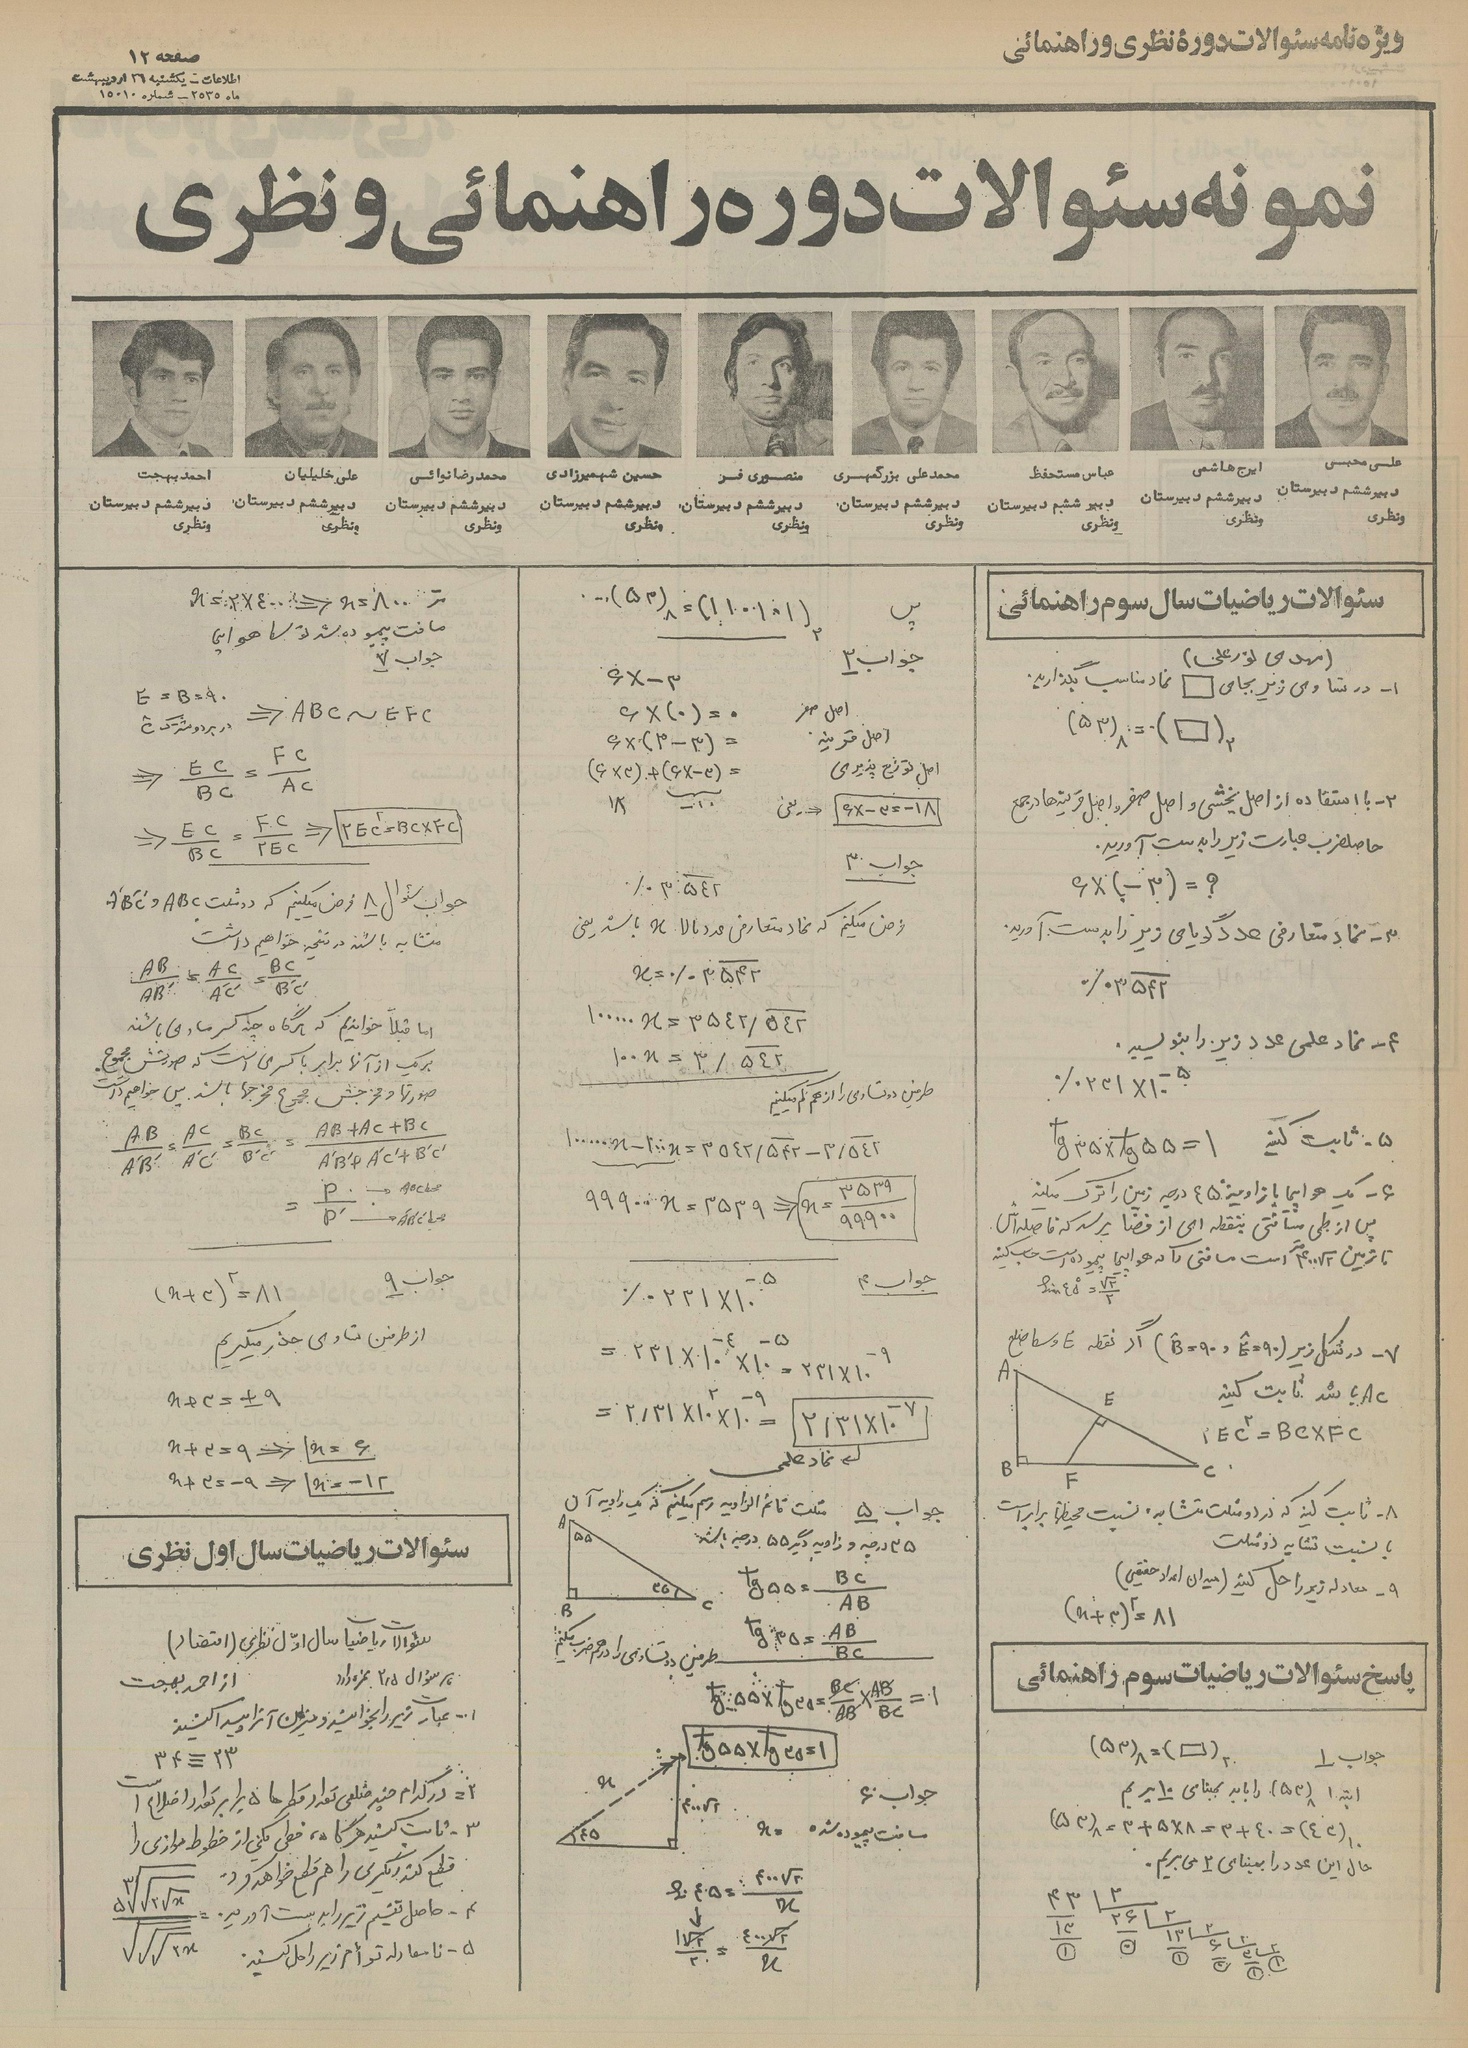 ویژه‌نامه سئوالات دورهٔ نظری و راهنمائی
صفحه ۱۲
اطلاعات – یکشنبه ۲۶ اردیبهشت
ماه ۲۵۳۵ – شماره ۱۵۰۱۰
نمونه سئوالات دوره راهنمائی و نظری
علی محبی
دبیر ششم دبیرستان
و نظری
ایرج هاشمی
دبیر ششم دبیرستان
و نظری
عباس مستحفظ
دبیر ششم دبیرستان
و نظری
محمدعلی بزرگمهری
دبیر ششم دبیرستان
و نظری
منصوری فر
دبیر ششم دبیرستان
و نظری
حسین شهمیرزادی
دبیر ششم دبیرستان
و نظری
محمدرضا نوائی
دبیر ششم دبیرستان
و نظری
علی خلیلیان
دبیر ششم دبیرستان
و نظری
احمد بهجت
دبیر ششم دبیرستان
و نظری
سئوالات ریاضیات سال سوم راهنمائی
۱- در تساوی زیر بجای □ نماد مناسب بگذارید.
(۵۳)₈ = (□)₂
۲- با استفاده از اصل پخشی و اصل صفر و اصل قرینه‌ها در جمع
حاصلضرب عبارت زیر را بدست آورید.
۶×(-۳) = ?
۳- نماد متعارفی عدد گویای زیر را بدست آورید.
۴- نماد علمی عدد زیر را بنویسید.
۰/۰۲۳۱×۱۰⁻⁵
۵- ثابت کنید tg۳۵×tg۵۵=۱
۶- یک هواپیما با زاویه ۴۵ درجه زمین را ترک میکند
پس از طی مسافتی بنقطه ای از فضا میرسد که فاصله آن
تا زمین ۴۰۰√۲ است مسافتی را که هواپیما پیموده است حساب کنید
Sin ۴۵ = √۲/۲
۷- در شکل زیر (Ê=۹۰ و B̂=۹۰) اگر نقطه E وسط ضلع
AC باشد ثابت کنید
۲EC²=BC×FC
A
E
B
F
C
۸- ثابت کنید که در دو مثلث متشابه، نسبت محیطها برابر است
با نسبت تشابه دو مثلث
۹- معادله زیر را حل کنید (میدان اعداد حقیقی)
(x+۳)²=۸۱
پاسخ سئوالات ریاضیات سوم راهنمائی
جواب ۱ (۵۳)₈=(□)₂
ابتدا (۵۳)₈ را باید بمبنای ۱۰ ببریم
(۵۳)₈=۳+۵×۸=۳+۴۰=(۴۳)₁₀
حال این عدد را بمبنای ۲ می بریم.
پس (۵۳)₈=(۱۱۰۱۰۱۱)₂
جواب ۲
۶×-۳
اصل صفر ۶×(۰)=۰
اصل قرینه ۶×(۳-۳)=
اصل توزیع پذیری (۶×۳)+(۶×-۳)=
۱۸
یعنی ⇒ ۶×-۳=-۱۸
جواب ۳
فرض میکنیم که نماد متعارفی عدد بالا x باشد یعنی
۱۰۰x=۳/۵۴۲
طرفین دو تساوی را از هم کم میکنیم
۹۹۹۰۰x=۳۵۳۹ ⇒ x=۳۵۳۹/۹۹۹۰۰
جواب ۴
۰/۰۲۳۱×۱۰⁻⁵
=۲۳۱×۱۰⁻⁴×۱۰⁻⁵=۲۳۱×۱۰⁻⁹
=۲/۳۱×۱۰²×۱۰⁻⁹=۲/۳۱×۱۰⁻⁷
نماد علمی
جواب ۵ مثلث قائم الزاویه رسم میکنیم که یک زاویه آن
۳۵ درجه و زاویه دیگر ۵۵ درجه باشد
A
۵۵
B
۳۵
C
tg۵۵=BC/AB
tg۳۵=AB/BC
طرفین دو تساوی را در هم ضرب میکنیم
tg۵۵×tg۳۵=BC/AB×AB/BC=۱
tg۵۵×tg۳۵=۱
جواب ۶
مسافت پیموده شده x=
x
۴۰۰√۲
۴۵
Sin ۴۵=۴۰۰√۲/x
√۲/۲=۴۰۰√۲/x
x=۲×۴۰۰ ⇒ x=۸۰۰ متر
مسافت پیموده شده توسط هواپیما
جواب ۷
E=B=۹۰ ⇒ ABC~EFC
⇒ EC/BC=FC/AC
⇒ EC/BC=FC/۲EC ⇒ ۲EC²=BC×FC
جواب سئوال ۸ فرض میکنیم که دو مثلث ABC و A'B'C'
متشابه باشند در نتیجه خواهیم داشت
AB/A'B'=AC/A'C'=BC/B'C'
اما قبلاً خواندیم که هرگاه چند کسر مساوی باشند
هر یک از آنها برابر با کسری است که صورتش مجموع
صورتها و مخرجش مجموع مخرجها باشد پس خواهیم داشت
AB/A'B'=AC/A'C'=BC/B'C'=AB+AC+BC/A'B'+A'C'+B'C'
=P/P'
جواب ۹ (x+۳)²=۸۱
از طرفین تساوی جذر میگیریم
x+۳=±۹
x+۳=۹ ⇒ x=۶
x+۳=-۹ ⇒ x=-۱۲
سئوالات ریاضیات سال اول نظری
سئوالات ریاضیات سال اول نظری (اقتصاد)
هر سؤال ۲/۵ نمره دارد از احمد بهجت
۱- عبارت زیر را بخوانید و میزان آنرا پیدا کنید
۳۴≡۲۳
۲- در کدام چند ضلعی تعداد قطرها ۵ برابر تعداد اضلاع است
۳- ثابت کنید هرگاه خطی یکی از خطوط موازی را
قطع کند دیگری را هم قطع خواهد کرد
۴- حاصل تقسیم زیر را بدست آورید.
۵- نامعادله توأم زیر را حل کنید